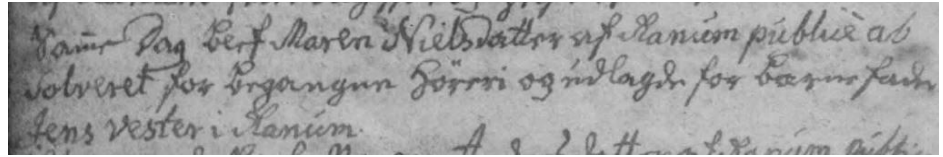 Samme Dag blef Maren Nielsdatter af Ranum publicè ab
solveret for begangne Hóreri og údlagde for barnefader
Jens Vester i Ranum.
Ranum public